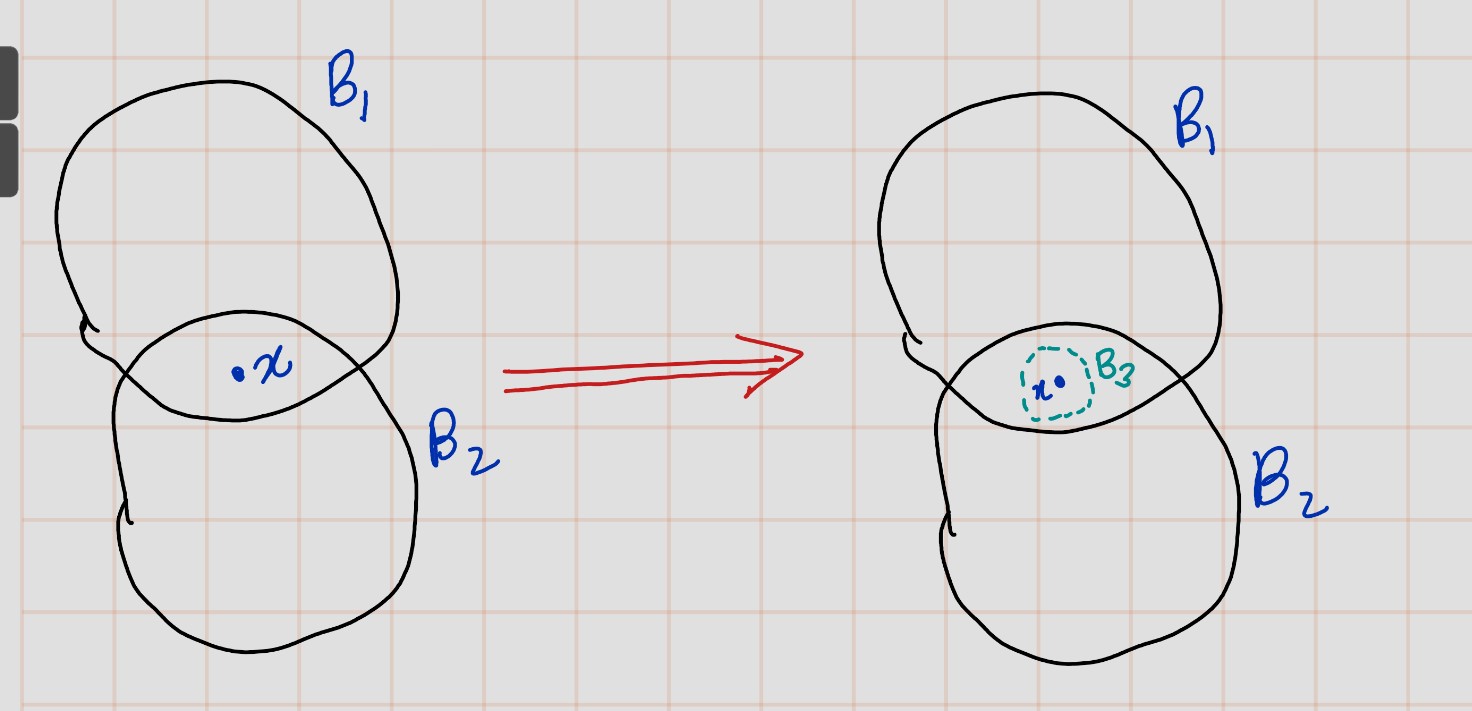 B₁
x
B₂
B₁
x
B₃
B₂